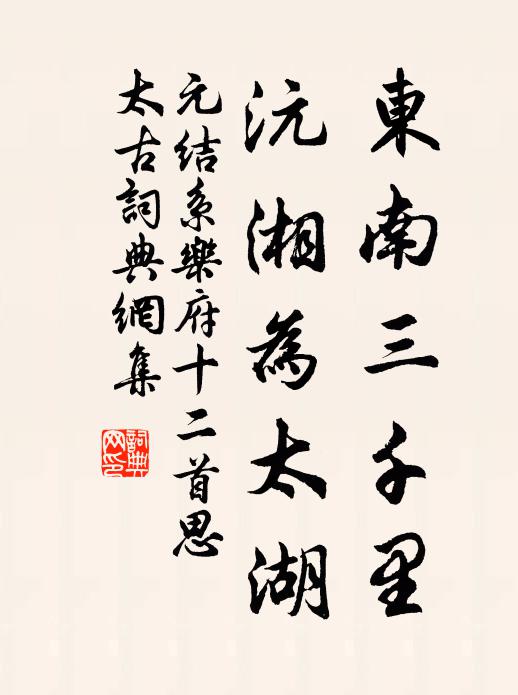 東南三千里
沅湘為太湖
元結系樂府十二首思
太古詞典網集
詞典
网印